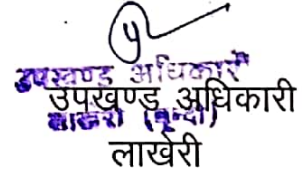 उपखण्ड अधिकारी
लाखेरी (बून्दी)
उपखण्ड अधिकारी
लाखेरी